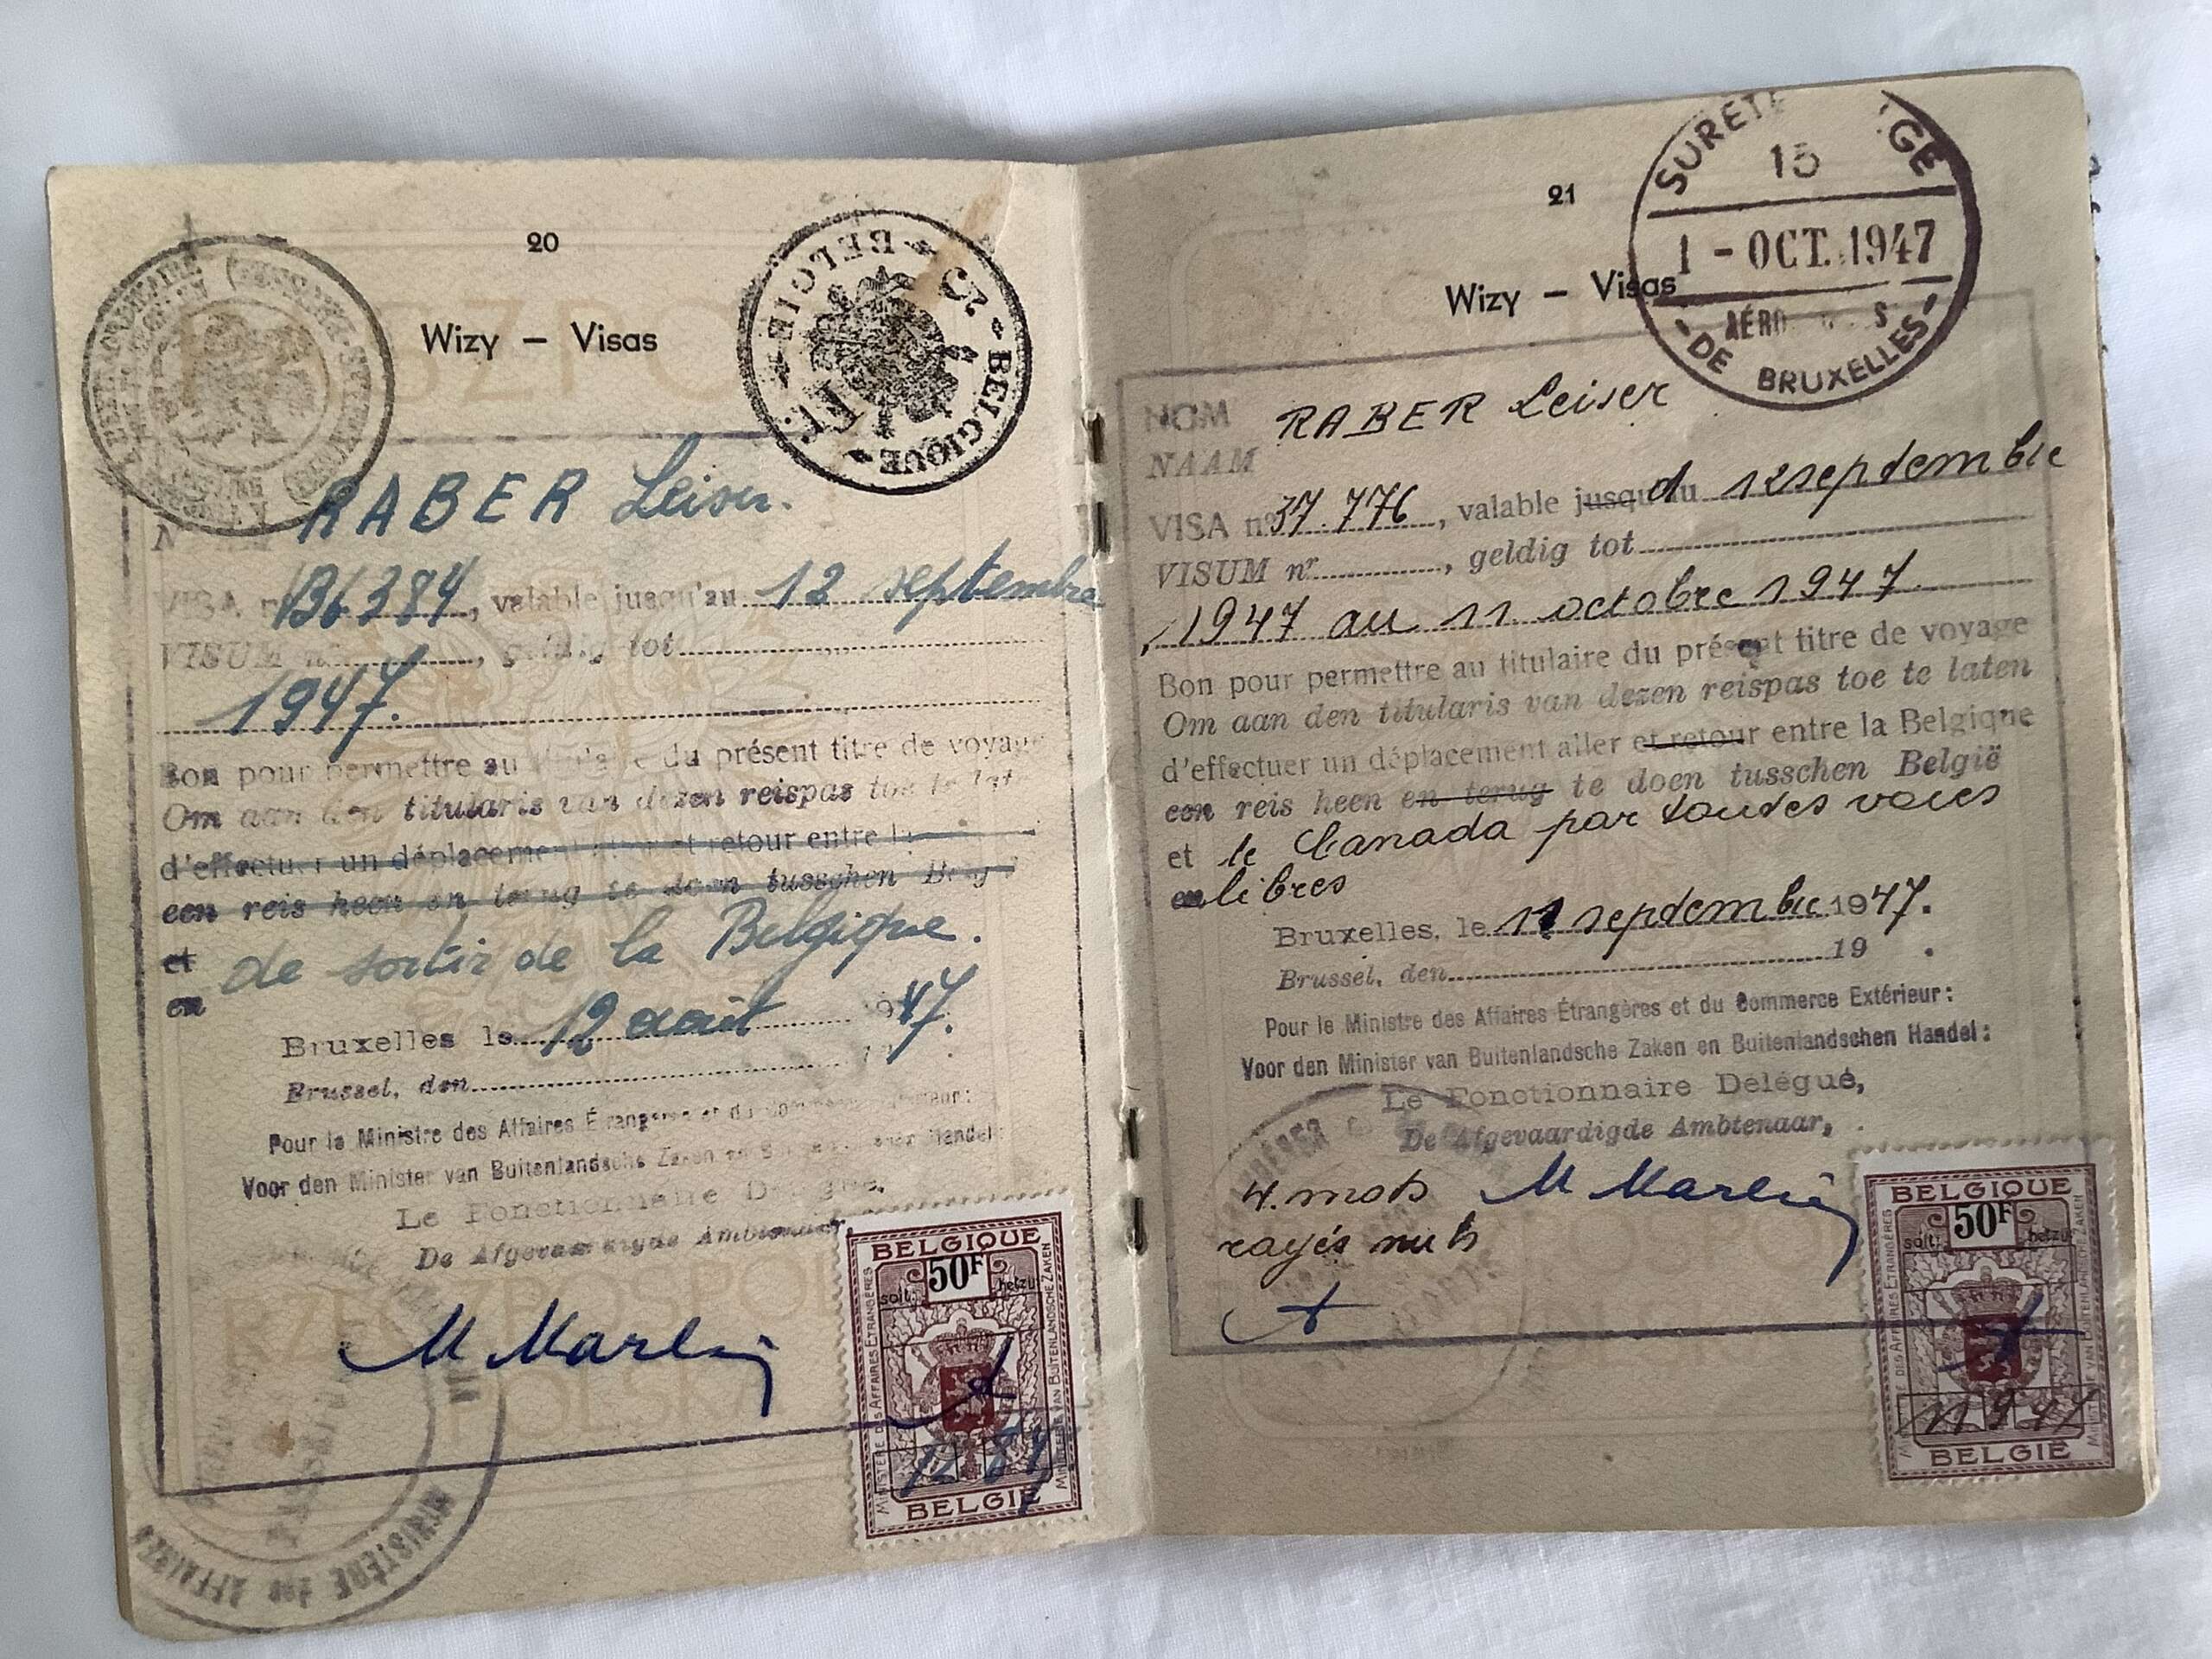 20
Wizy – Visas
BELGIQUE
BELGIË
RABER Leiser.
VISA n° B6384, valable jusqu'au 12 septembre
VISUM nr ..........., geldig tot
1947.
Bon pour permettre au titulaire du présent titre de voyage
Om aan den titularis van dezen reispas toe te lat
d'effectuer un déplacement et retour entre la
een reis heen en terug te doen tusschen
et de sortir de la Belgique.
en
Bruxelles le 12 août 1947.
Brussel, den
Pour le Ministre des Affaires Étrangères et du Commerce
Voor den Minister van Buitenlandsche Zaken en Handel:
Le Fonctionnaire Délégué,
De Afgevaardigde Ambtenaar,
M Marlin
BELGIQUE
50F
MINISTÈRE DES AFFAIRES ÉTRANGÈRES
MINISTERIE VAN BUITENLANDSCHE ZAKEN
12 8 47
BELGIË
MINISTÈRE DES AFFAIRES
21
Wizy – Visas
SURETE
15
1 - OCT. 1947
DE BRUXELLES
NOM RABER Leiser
NAAM
VISA n° 37.776, valable jusqu'au d 12 septembre
VISUM nr ..........., geldig tot
1947 au 11 octobre 1947.
Bon pour permettre au titulaire du présent titre de voyage
Om aan den titularis van dezen reispas toe te laten
d'effectuer un déplacement aller et retour entre la Belgique
een reis heen en terug te doen tusschen België
et le Canada par toutes voies
en libres
Bruxelles, le 11 septembre 1947.
Brussel, den 19 .
Pour le Ministre des Affaires Étrangères et du Commerce Extérieur:
Voor den Minister van Buitenlandsche Zaken en Buitenlandschen Handel:
Le Fonctionnaire Délégué,
De Afgevaardigde Ambtenaar,
4. mots M Marlin
rayés nuls
BELGIQUE
50F
MINISTÈRE DES AFFAIRES ÉTRANGÈRES
11 9 47
BELGIË